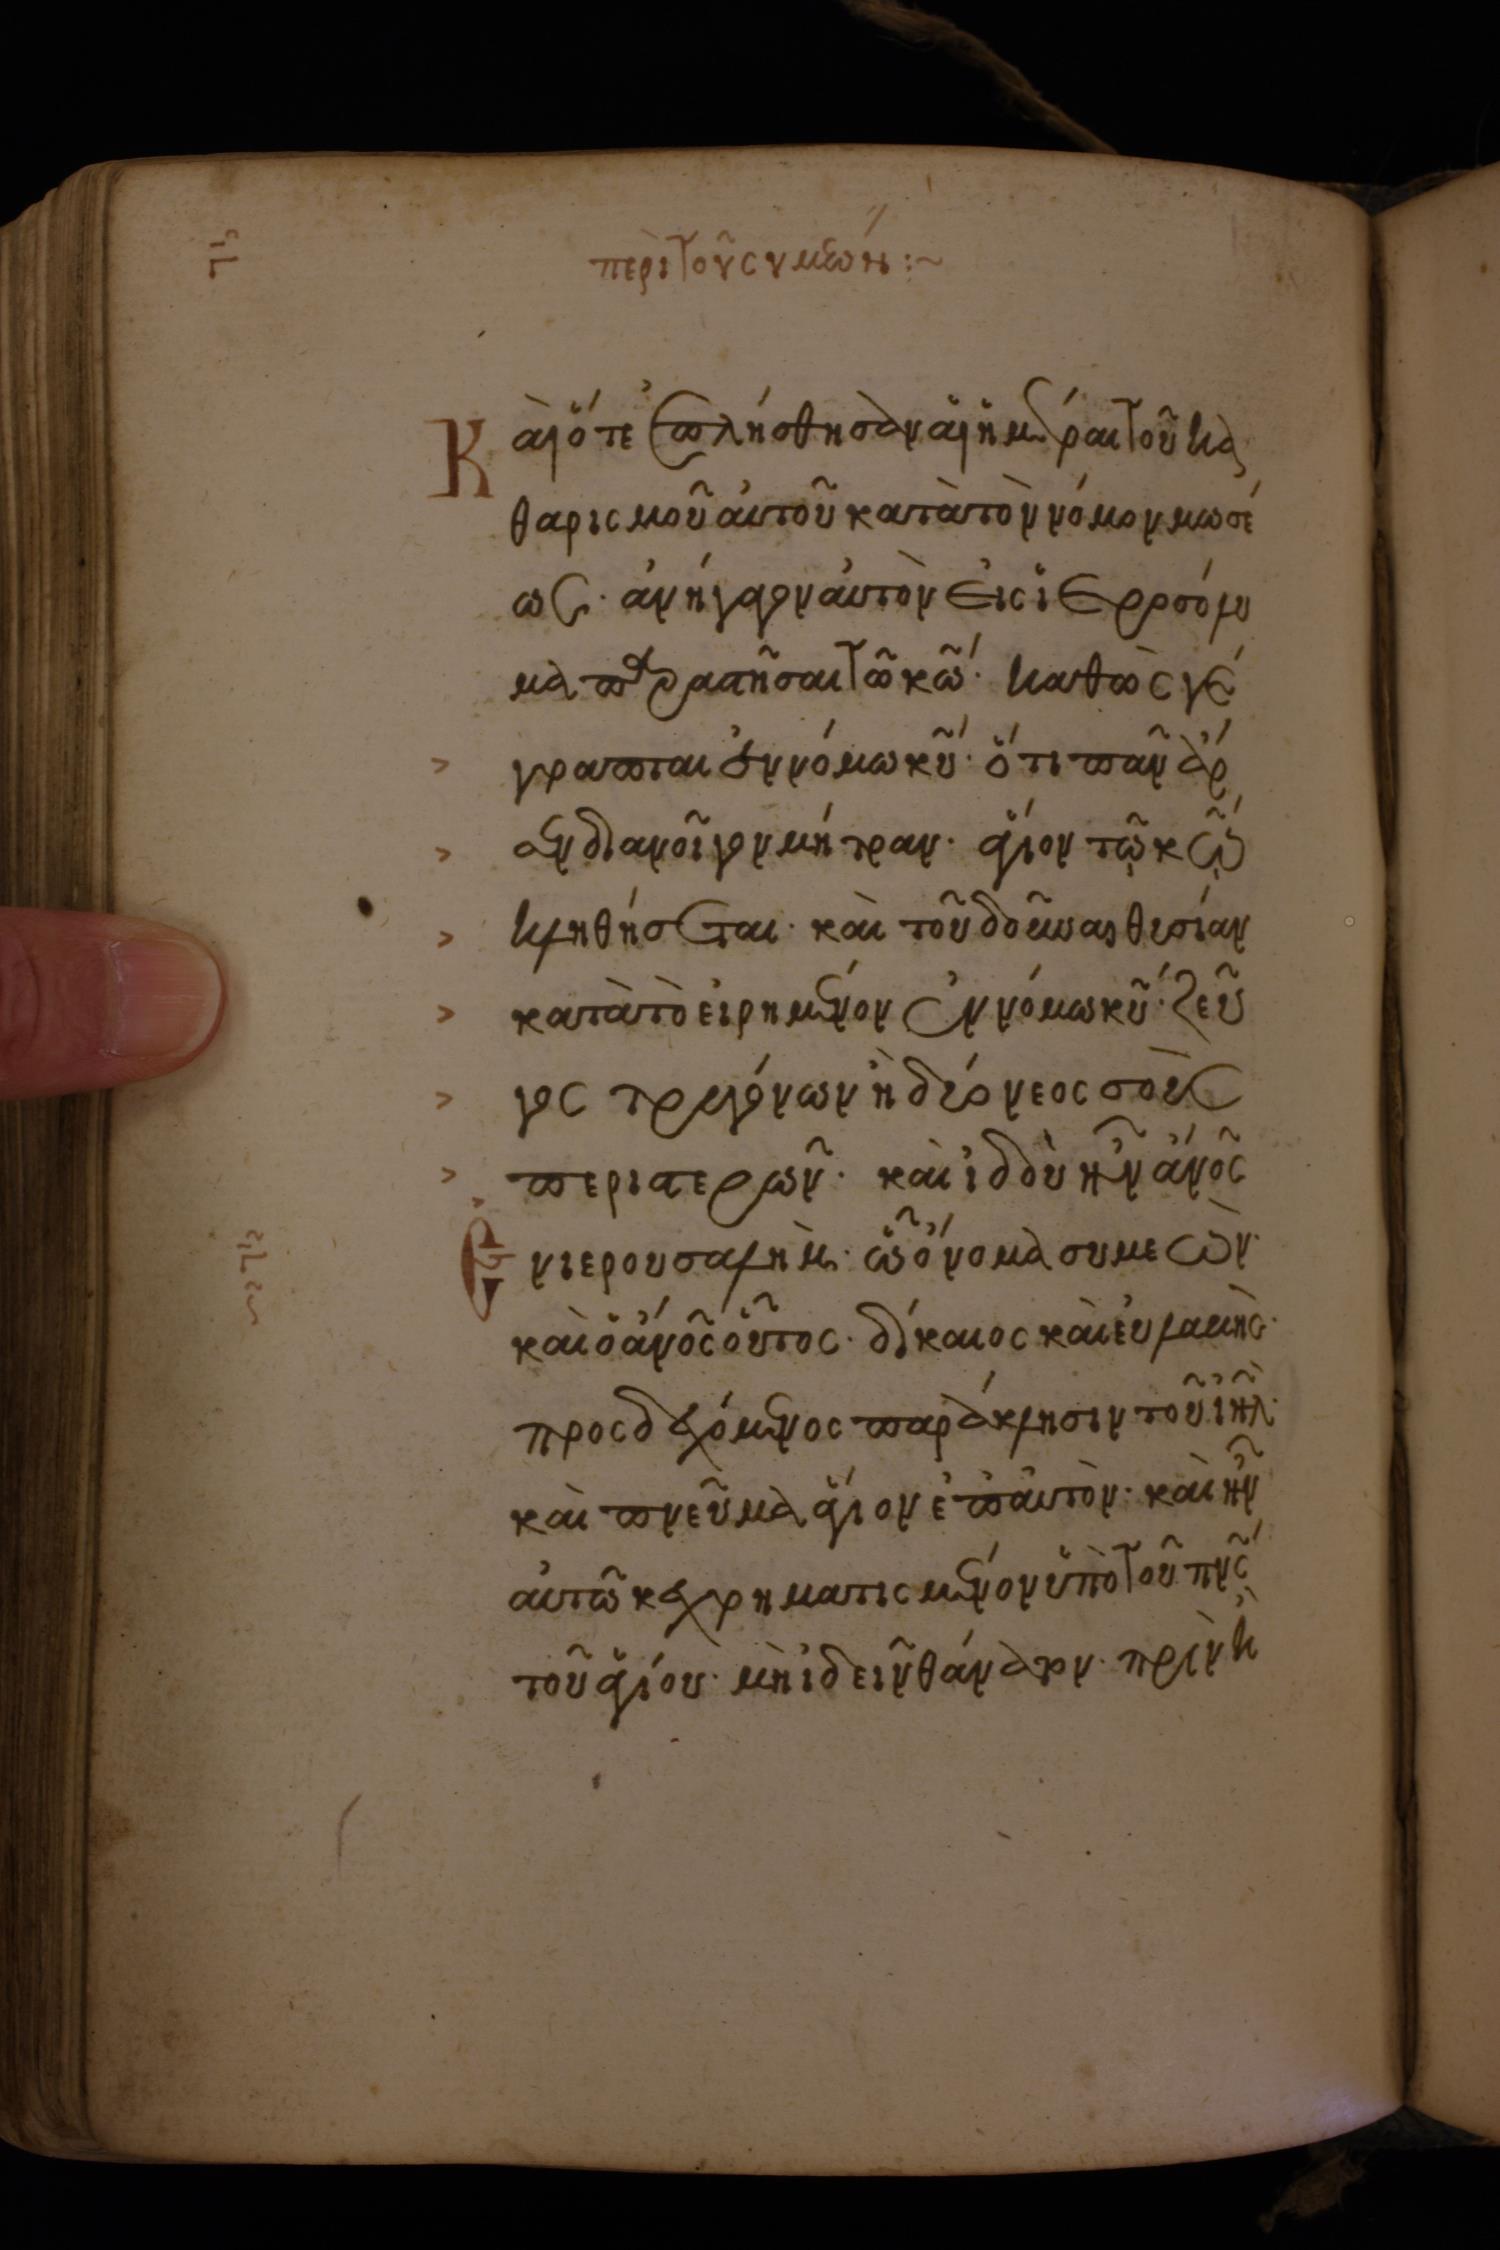 περὶ τοῦ συμεών :~
Καὶ ὅτε ἐπλήσθησαν αἱ ἡμέραι τοῦ κα
θαρισμοῦ αὐτοῦ κατὰ τὸν νόμον μωσέ
ως · ἀνήγαγον αὐτὸν εἰς ἱεροσόλυ
μα παραστῆσαι τῶ κῶ · καθὼς γέ
γραπται ἐν νόμω κῦ · ὅτι πᾶν ἄρ
σεν διανοῖγον μήτραν · ἅγιον τῷ κῷ
κληθήσεται · καὶ τοῦ δοῦναι θυσίαν
κατὰ τὸ εἰρημένον ἐν νόμω κῦ · ζεῦ
γος τρυγόνων ἢ δύο νεοσσοὺς
περιστερῶν · καὶ ἰδοὺ ἦν ἄνος
ἐν ιερουσαλὴμ · ὧ ὄνομα συμεὼν ·
καὶ ὁ ἄνος οὗτος · δίκαιος καὶ εὐλαβὴς ·
προσδεχόμενος παράκλησιν τοῦ ἰηλ ·
καὶ πνεῦμα ἅγιον ἐπ αὐτὸν · καὶ ἦν
αὐτῶ κεχρηματισμένον ὑπὸ τοῦ πνς
τοῦ ἁγίου · μὴ ἰδεῖν θάνατον · πρὶν ἢ